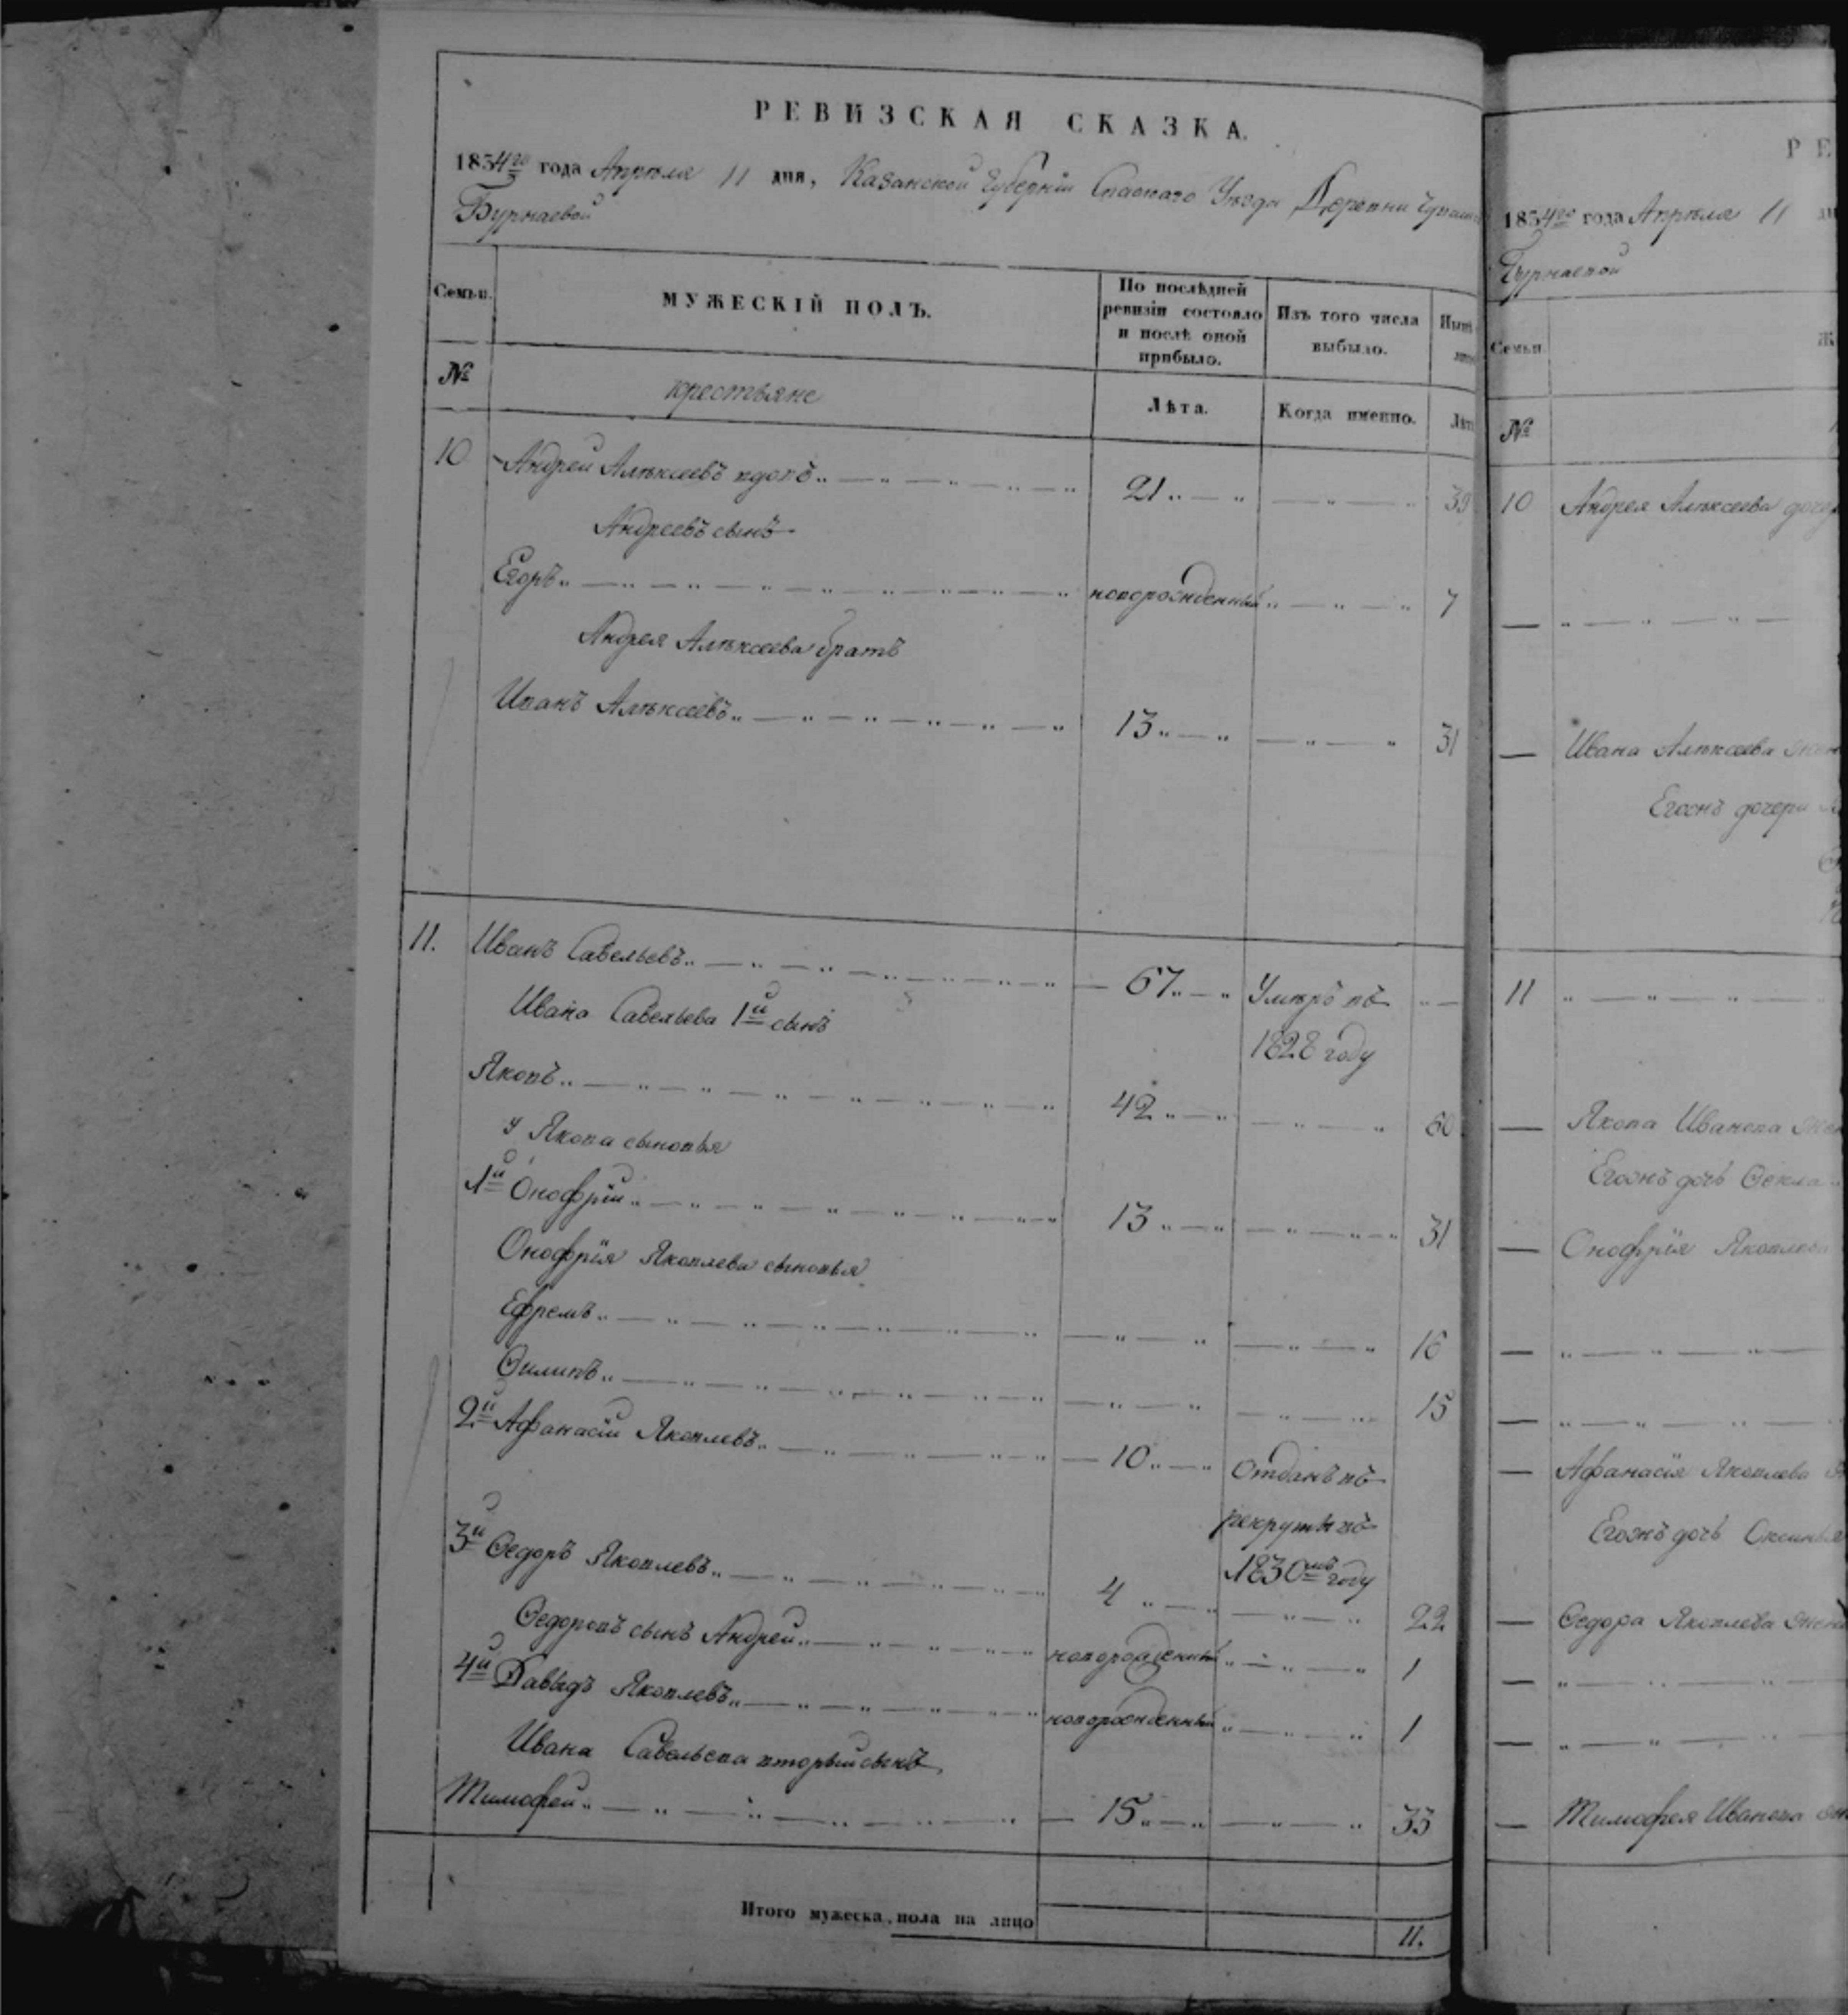 РЕВИЗСКАЯ СКАЗКА.
1834го года Апреля 11 дня, Казанской Губернии Спаскаго Уезда Деревни
Бурнаевой
Семьи.
МУЖЕСКІЙ ПОЛЪ.
По послѣдней ревизіи состояло и послѣ оной прибыло.
Изъ того числа выбыло.
№
крестьяне
Лѣта.
Когда именно.
10 Андрей Алѣксеевъ вдовъ 21 39
Андреевъ сынъ
Егоръ новорожденный 7
Андрея Алѣксеева братъ
Иванъ Алѣксеевъ 13 31
11. Иванъ Савельевъ 67 Умѣръ въ
1828 году
Ивана Савельева 1й сынъ
Яковъ 42 60
у Якова сыновья
1й Онофрій 13 31
Онофрія Яковлева сыновья
Ефремъ 16
Филипъ 15
2й Афанасій Яковлевъ 10 Отданъ въ
рекруты въ
1830мъ году
3й Федоръ Яковлевъ 4 22
Федоровъ сынъ Андрей новорожденный 1
4й Давыдъ Яковлевъ новорожденный 1
Ивана Савельева вторый сынъ
Тимофей 15 33
Итого мужеска пола на лицо 11.
РЕ
1834го года Апреля 11
Бурнаевой
Семьи.
№
10 Андрея Алѣксеева
Ивана Алѣксеева
Егожъ дочери
11
Якова Иванова
Егожъ дочь Фекла
Онофрія Яковлева
Афанасія Яковлева
Егожъ дочь
Федора Яковлева
Тимофея Иванова